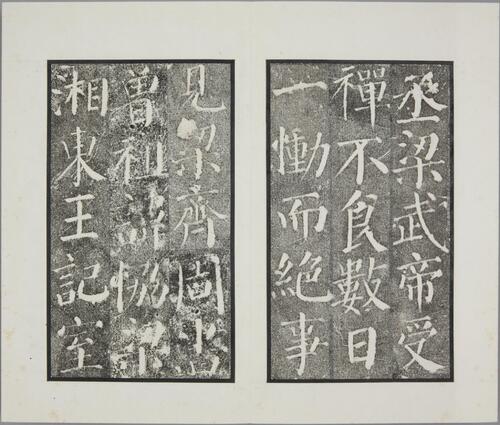 丞梁武帝受
禪不食數日
一慟而絕事
見梁齊周書
曾祖諱協梁
湘東王記室